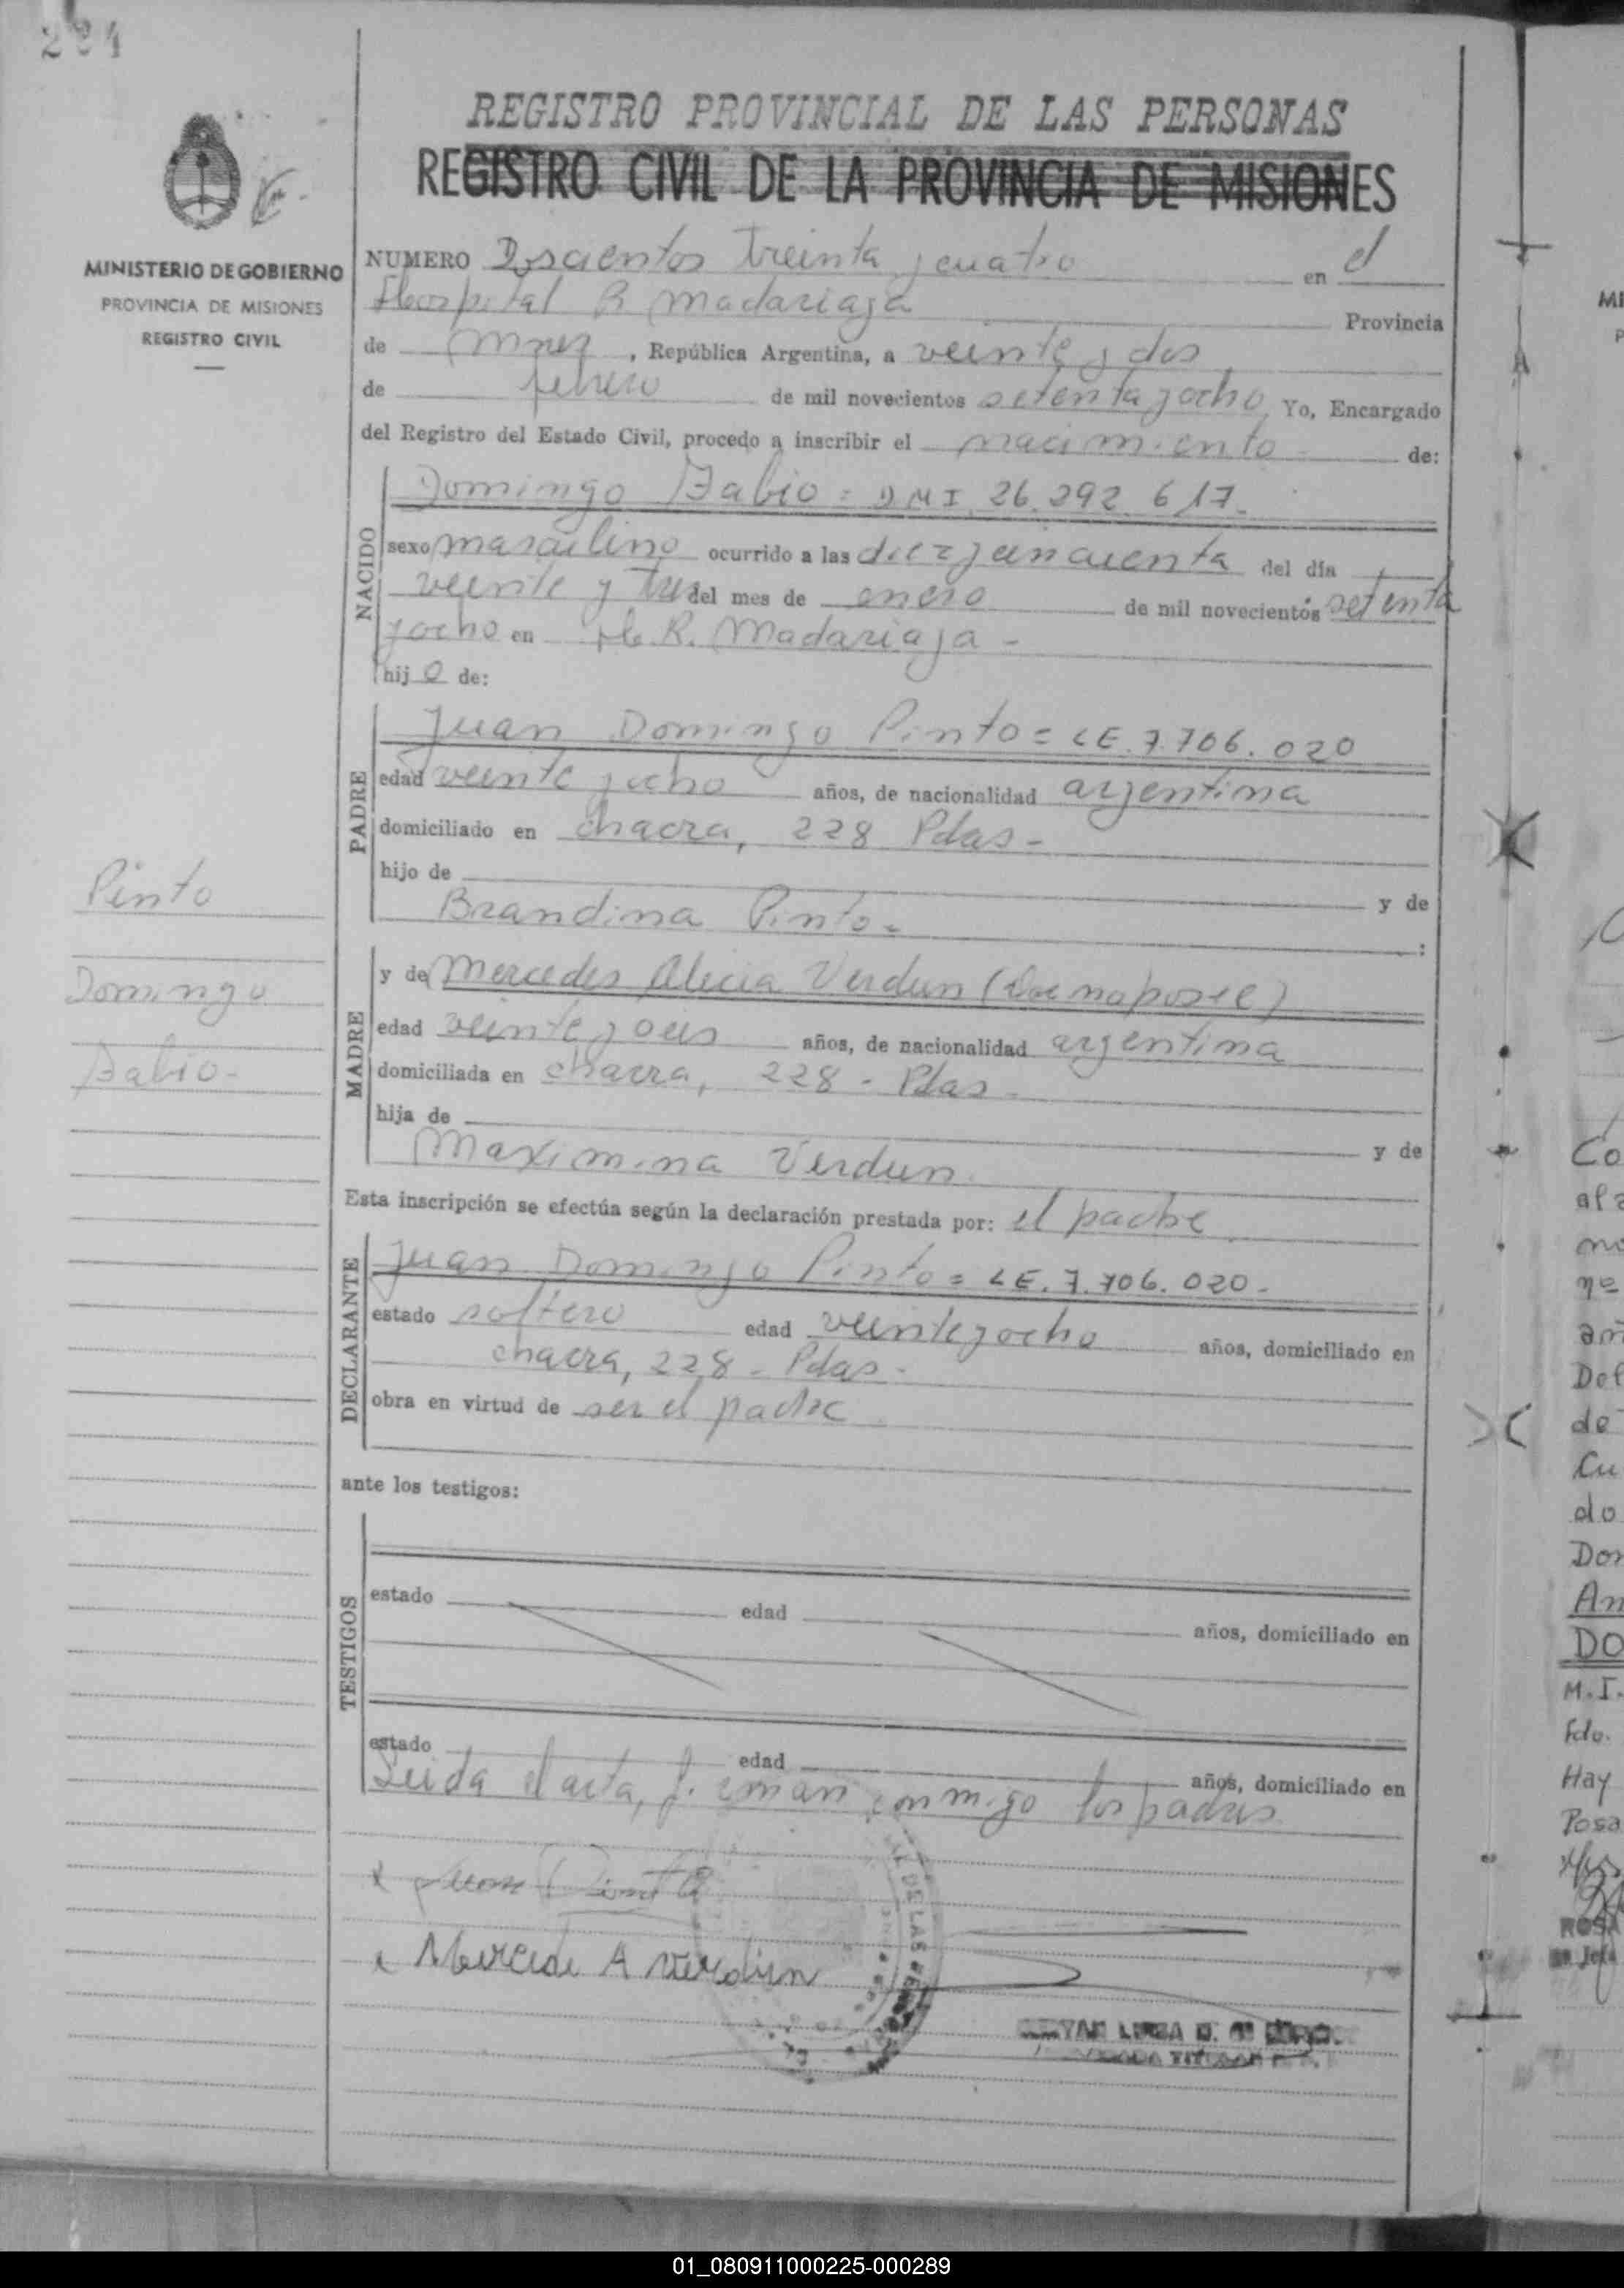 REGISTRO PROVINCIAL DE LAS PERSONAS
REGISTRO CIVIL DE LA PROVINCIA DE MISIONES
MINISTERIO DE GOBIERNO
PROVINCIA DE MISIONES
REGISTRO CIVIL
NUMERO Doscientos treinta y cuatro en el
Hospital R Madariaga Provincia
de Mnes, República Argentina, a veinte y dos
de febrero de mil novecientos setenta y ocho Yo, Encargado
del Registro del Estado Civil, procedo a inscribir el nacimiento de:
NACIDO
Domingo Fabio = DMI 26.292.617.
sexo masculino ocurrido a las diez y cincuenta del día
veinte y tres del mes de enero de mil novecientos setenta
y ocho en H. R. Madariaga -
hijo de:
PADRE
Juan Domingo Pinto = LE. 7.706.020
edad veinte y ocho años, de nacionalidad argentina
domiciliado en chacra, 228 Pdas -
hijo de y de
Brandina Pinto -
Pinto
Domingo
Fabio -
MADRE
y de Mercedes Alicia Verdun
edad veinte y años, de nacionalidad argentina
domiciliada en chacra, 228 - Pdas -
hija de y de
Maximina Verdun.
Esta inscripción se efectúa según la declaración prestada por: el padre
DECLARANTE
Juan Domingo Pinto = LE. 7.706.020 -
estado soltero edad veinte y ocho años, domiciliado en
chacra, 228 - Pdas -
obra en virtud de ser el padre
ante los testigos:
TESTIGOS
estado edad años, domiciliado en
estado edad años, domiciliado en
Leida el acta, firman conmigo los padres
x Juan Pinto
x Mercede A verdun
DE LAS
Co
no
Del
de
Cu
do
Don
An
DO
M.I.
Fdo.
Hay
Posa
ROSA
Jefa
01_080911000225-000289